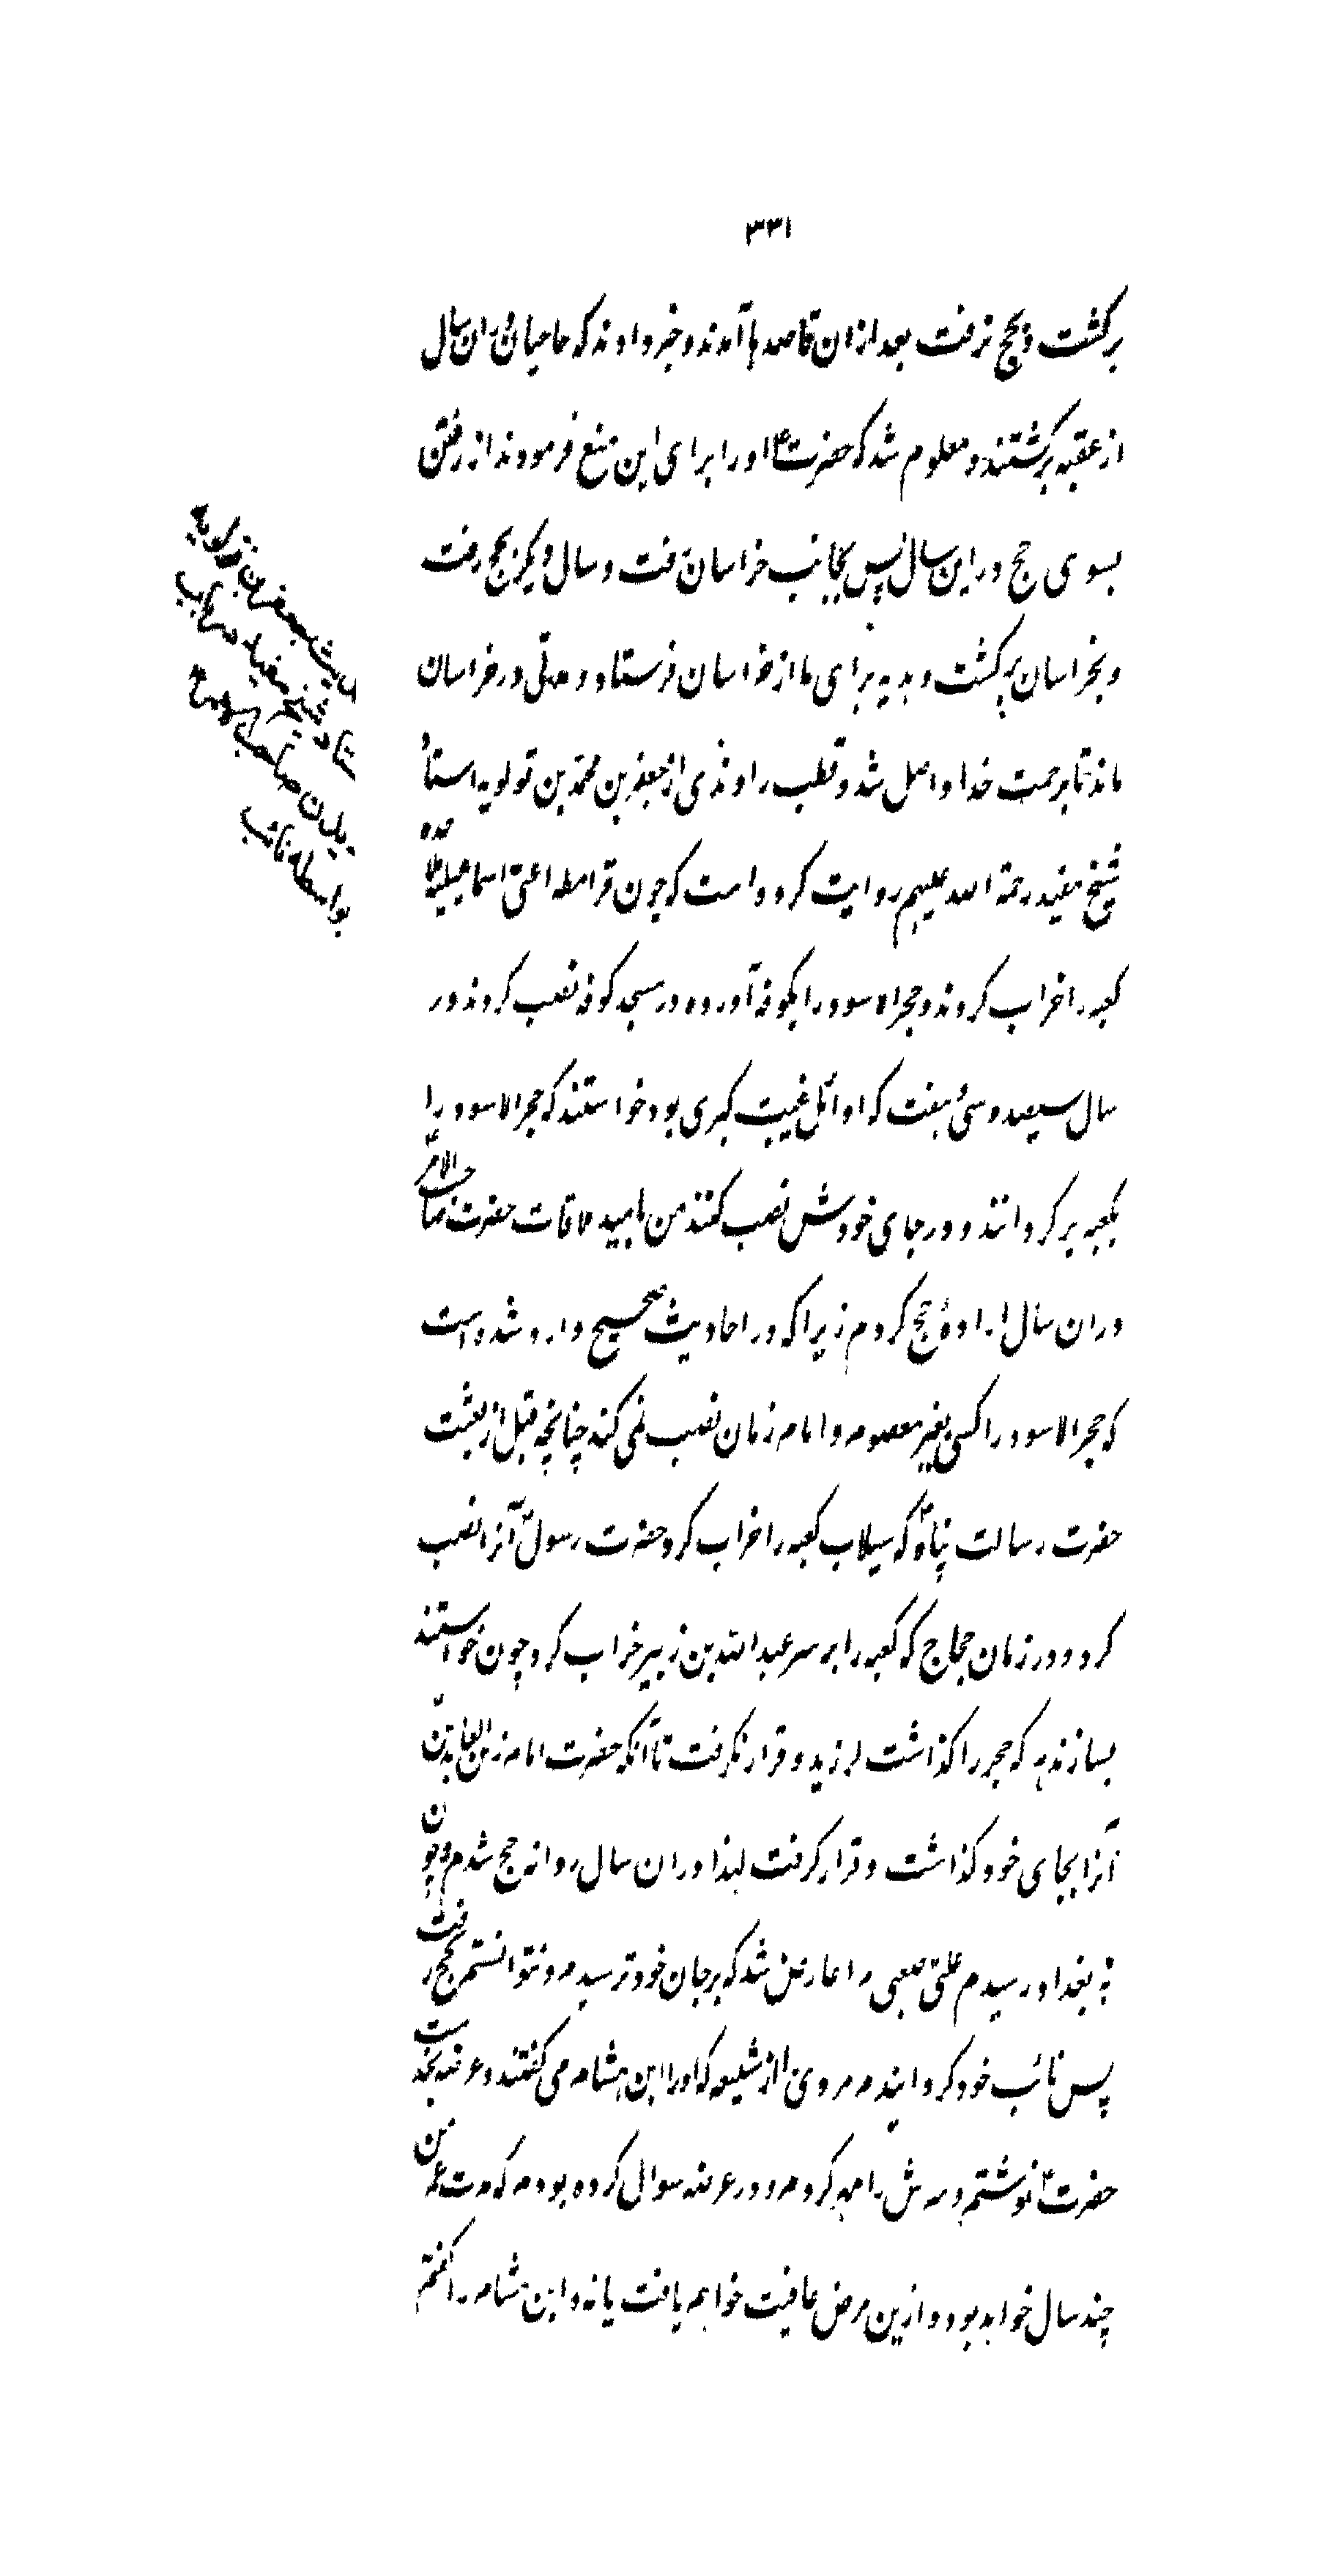 ۳۳۱
برکشت و بحج نرفت بعد از ان قاصدها آمدند و خبر دادند که حاجیان در ان سال
از عقبه برکشتند و معلوم شد که حضرت ع او را برای این منع فرمودند از رفتن
بسوی حج در این سال پس بجانب خراسان رفت و سال دیکر بحج رفت
و بخراسان برکشت و هدیه برای ما از خراسان فرستاد و مدتی در خراسان
ماند تا برحمت خدا واصل شد و قطب راوندی از جعفر بن محمد بن قولویه استاد
شیخ مفید رحمة الله علیهم روایت کرده است که چون قرامطه اعنی اسماعیلیه ملاحده
کعبه را خراب کردند و حجر الاسود را بکوفه آورده در مسجد کوفه نصب کردند در
سال سیصد و سی و هفت که اوائل غیبت کبری بود خواستند که حجر الاسود را
بکعبه بر کردانند و در جای خودش نصب کنند من بامید ملاقات حضرت صاحب الامر
در ان سال ارادۀ حج کردم زیرا که در احادیث صحیح وارد شده است
که حجر الاسود را کسی بغیر معصوم و امام زمان نصب نمی کند چنانچه قبل از بعثت
حضرت رسالت پناه که سیلاب کعبه را خراب کرد حضرت رسول آنرا نصب
کرد و در زمان حجاج که کعبه را بر سر عبد الله بن زبیر خراب کرد چون خواستند
بسازند هر که حجر را کذاشت لرزید و قرار نکرفت تا آنکه حضرت امام زین العابدین
آنرا بجای خود کذاشت و قرار کرفت لهذا در ان سال روانه حج شدم و چون
به بغداد رسیدم علتی صعبی مرا عارض شد که بر جان خود ترسیدم و نتوانستم بحج رفت
پس نائب خود کردانیدم مردی از شیعه که او را ابن هشام می کفتند و عریضه بخدمت
حضرت ع نوشتم و سرش را مهر کردم و در عریضه سوال کرده بودم که مدت عمر من
چند سال خواهد بود و ازین مرض عافیت خواهم یافت یا نه و ابن هشام را کفتم
جعفر بن قولویه
شیخ مفید
بواسطه نائب